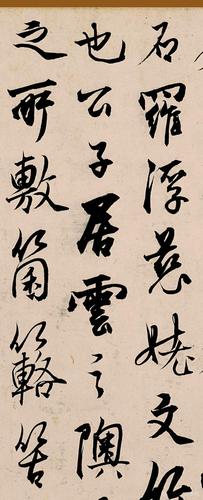 石羅浮慈姥文
也公子居雲之隩
之所敷箘簬